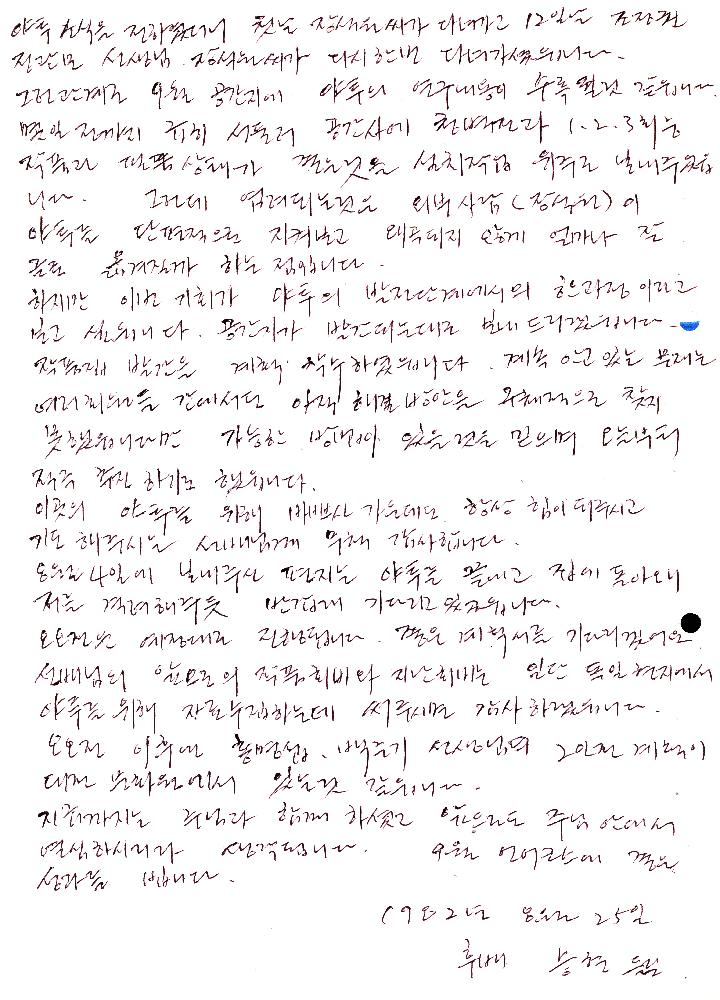 야투 소식을 전하였더니 첫날 장석원씨가 다녀가고 12일날
선생님 장석원씨가 다시한번 다녀가셨습니다.
그런관계로 9월 공간지에 야투의 연구내용이 수록될것 같습니다.
몇일 전까지 급히 서둘러 공간사에 1.2.3회
작품과 상태가 좋은것을 설치작업 위주로 보내주었습
니다. 그런데 염려되는것은 외부사람(장석원)이
야투를 단편적으로 지켜보고 왜곡되지 않게 얼마나 잘
글로 옮겨질까 하는 점입니다.
하지만 이번 기회가 야투의 발전단계에서의 한과정이라고
보고 싶습니다. 공간지가 발간되는대로 보내드리겠습니다.
작품집 발간을 계획 착수하였습니다. 계속 안고있는 문제는
여러회원들 간에서도 아직 해결방안을 구체적으로 찾지
못했습니다만 가능한 방법이 있을것을 믿으며 오늘부터
적극 추진 하기로 했습니다.
이곳의 야투를 위해 바쁘신 가운데도 항상 힘이되주시고
기도 해주시는 선배님께 무척 감사합니다.
8월 4일에 보내주신 편지는 야투를 끝내고 집에 돌아오니
저를 격려해주듯 반갑게 기다리고 있었습니다.
오오전은 예정대로 진행됩니다. 좋은 계획서를 기다리겠어요
선배님의 앞으로의 작품회비와 지난회비는 일단 독일현지에서
야투를 위해 자료수집하는데 써주시면 감사하겠습니다.
오오전 이후에 선생님의 2인전 계획이
대전 문화원에서 있는것 같습니다.
지금까지는 주님과 함께 하셨고 앞으로도 주님 안에서
열심하시리라 생각됩니다. 9월 좋은
성과를 빕니다.
1982년 8월 25일
후배 승현 드림